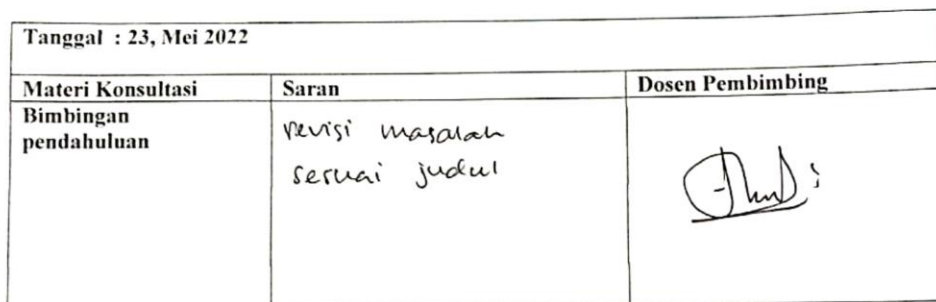 Tanggal : 23, Mei 2022
Materi Konsultasi Saran Dosen Pembimbing
Bimbingan
pendahuluan
revisi masalah
sesuai judul